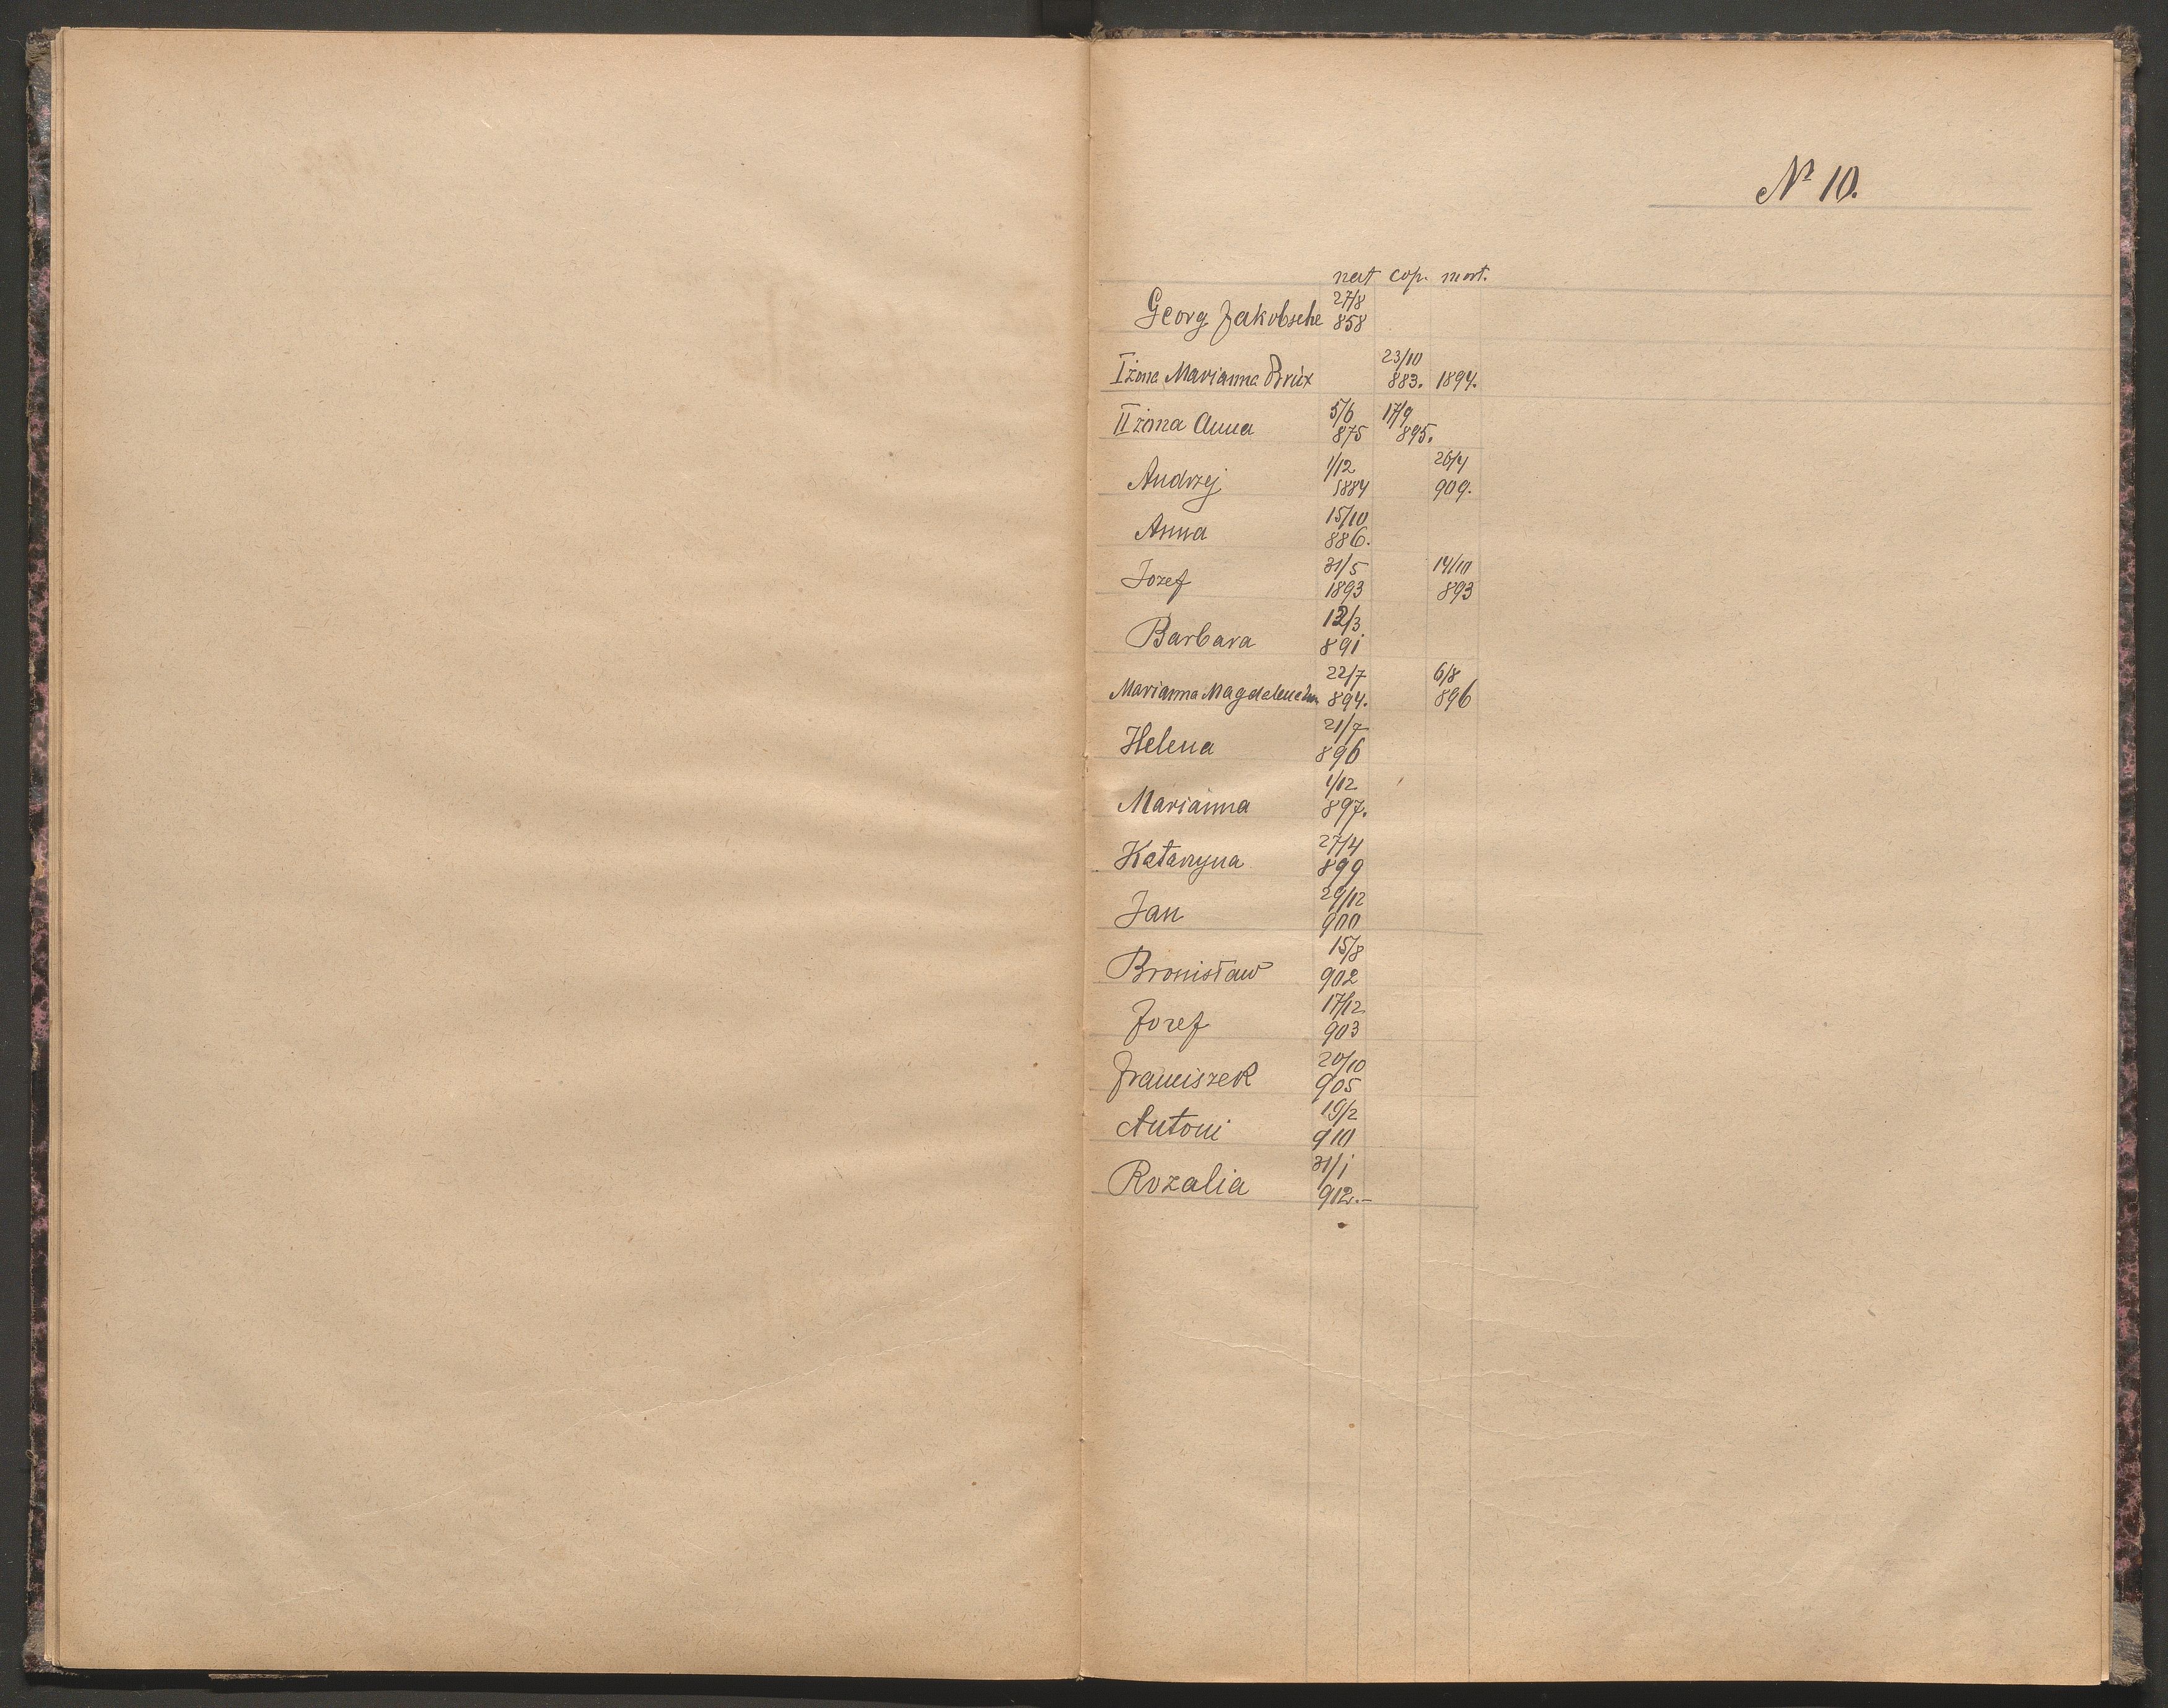 Nr 10.
nat cop. mort.
27/8
Georg Jakobsche 858
23/10
I żona Marianna Brüx 883. 1894.
5/6 17/9
II żona Anna 875 895.
1/12 26/4
Andrzej 1884 909.
15/10
Anna 886.
31/5 14/10
Jozef 1893 893
12/3
Barbara 891
22/7 6/8
Marianna 894. 896
21/7
Helena 896
1/12
Marianna 897.
27/4
Katarzyna 899
29/12
Jan 900
15/8
Bronisław 902
17/12
Jozef 903
20/10
Franciszek 905
19/2
Antoni 910
31/1
Rozalia 912.-